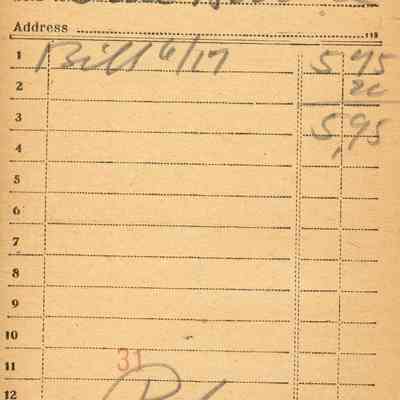 Address 118
1 Bill 6/17 5 75
2 20
3 5,95
4
5
6
7
8
9
10
11 31
12